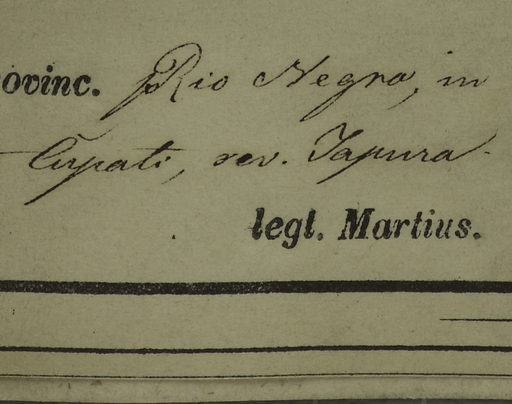 ovinc. Rio Negro, in
Cupati, rev. Japura
legt. Martius.